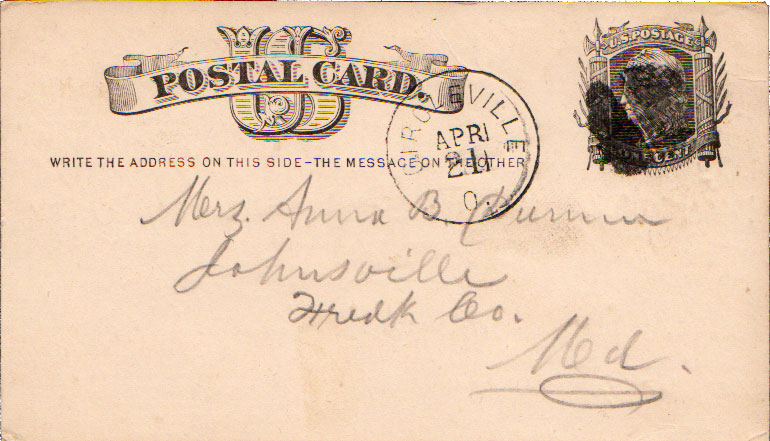 U.S. POSTAGE
US
POSTAL CARD.
CIRCLEVILLE
APR
21
O.
ONE CENT
WRITE THE ADDRESS ON THIS SIDE-THE MESSAGE ON THE OTHER
Mrs. Anna B.
Johnsville
Fredk Co.
Md.